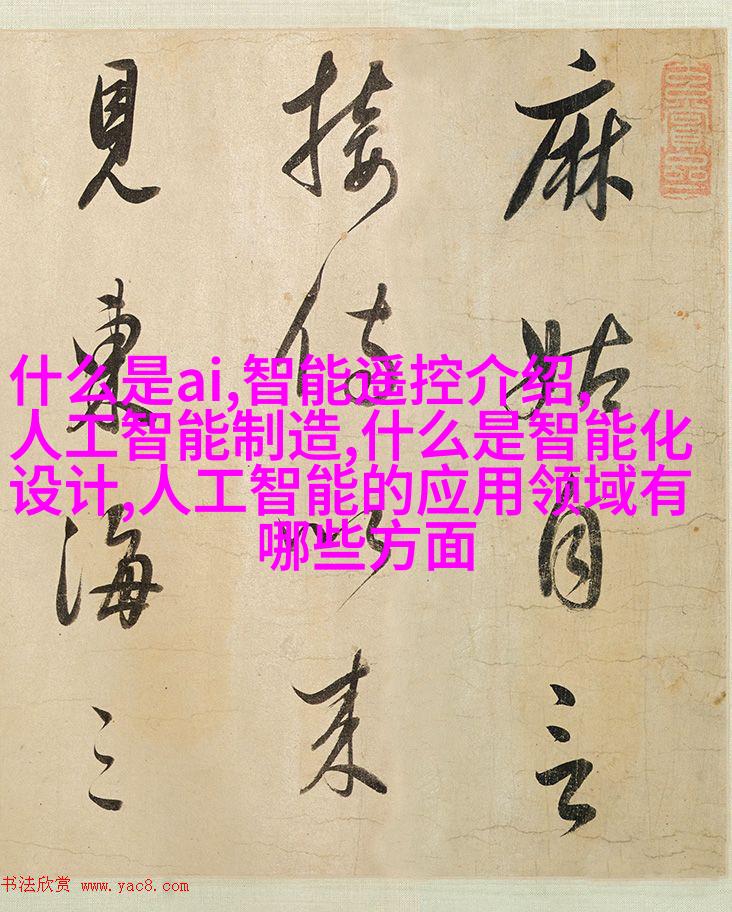 麻姑自言
接侍以来
見東海三
什么是ai,智能遥控介绍,
人工智能制造,什么是智能化
设计,人工智能的应用领域有
哪些方面
书法欣赏 www.yac8.com